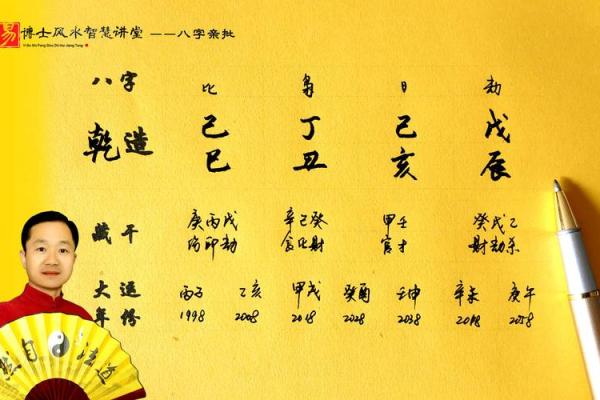 易 博士风水智慧讲堂 ——八字亲批
Yi Bo Shi Feng Shui Zhi Hui Jiang Tang
八字 比 枭 日 劫
乾造 己 丁 己 戊
巳 丑 亥 辰
藏干 庚丙戊 辛己癸 甲壬 癸戊乙
伤印劫 食比财 官才 财劫杀
大运 丙子 乙亥 甲戌 癸酉 壬申 辛未 庚午
年份 1998 2008 2018 2028 2038 2048 2058
然自 法道